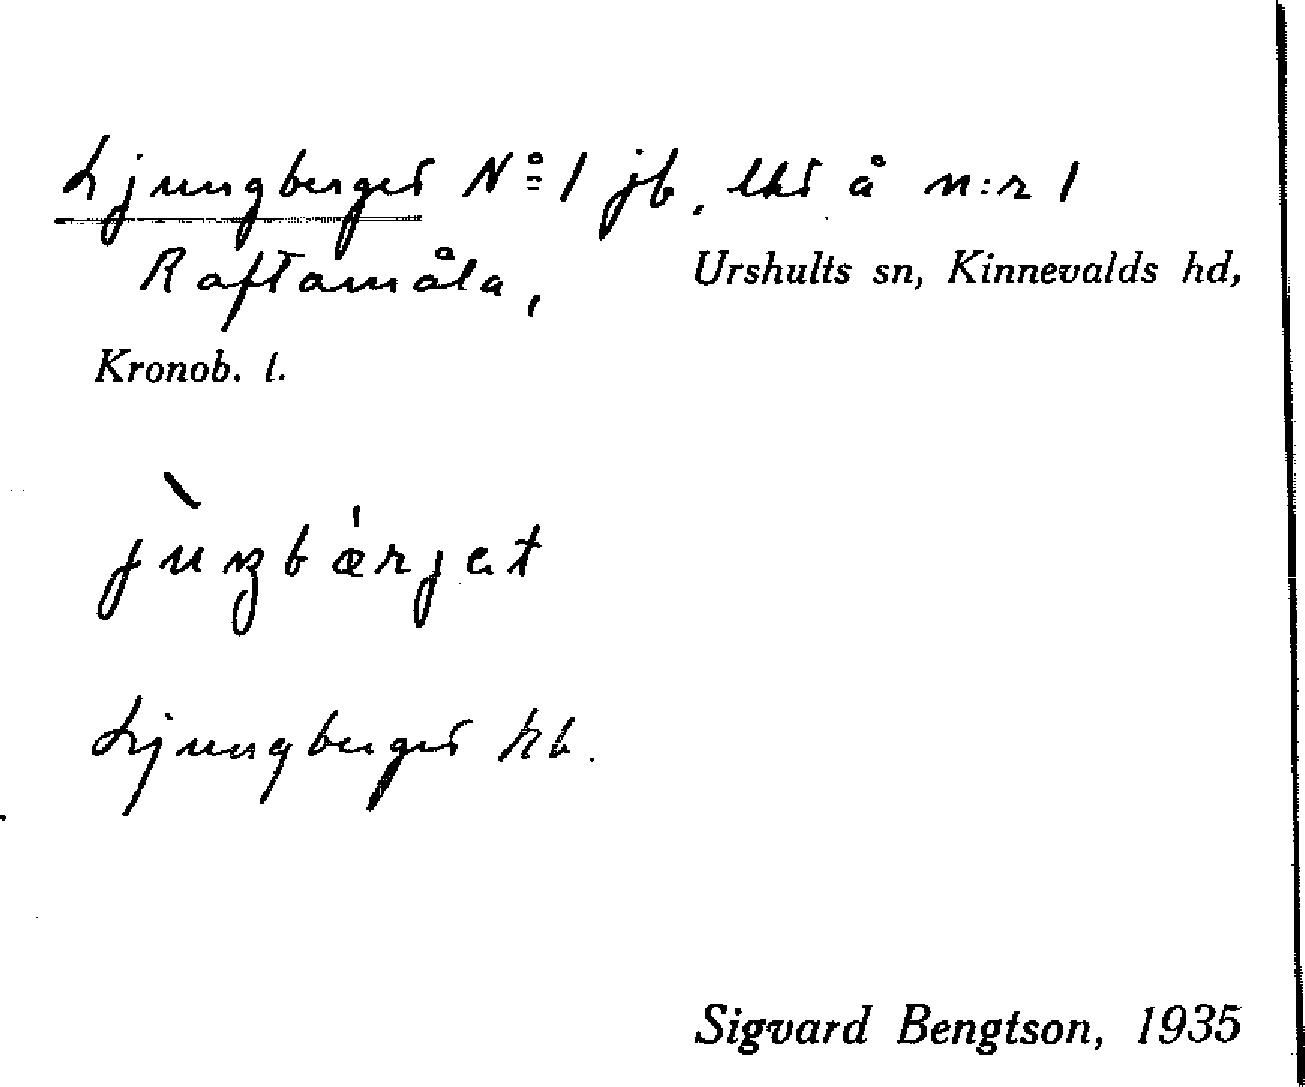 Ljungberget Nº 1 jb. lht å n:r 1
Raftamåla, Urshults sn, Kinnevalds hd,
Kronob. l.
jùŋbǽrjət
Ljungberget kb.
Sigvard Bengtson, 1935